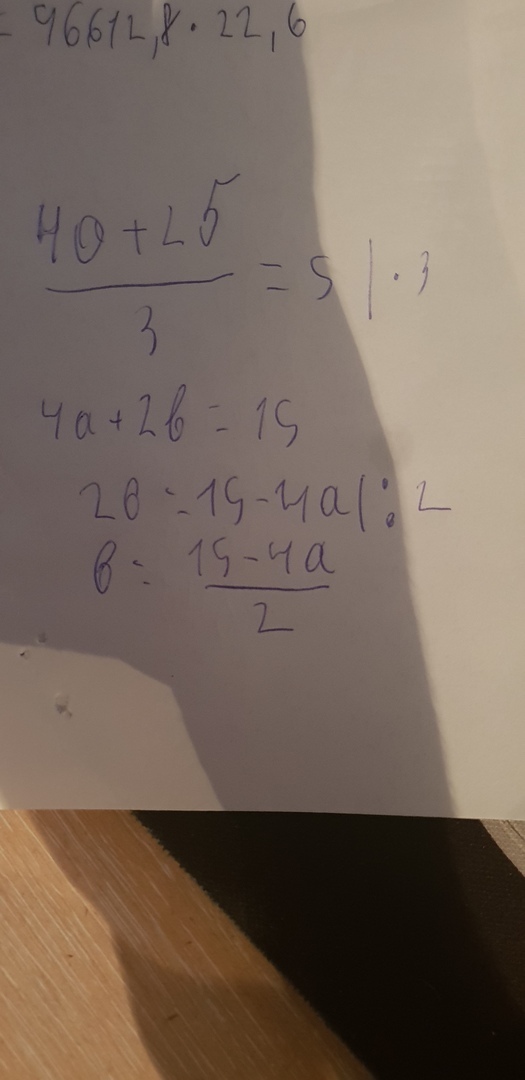 = 96612,8 · 22,6
4a + 2б
3
= 5 | · 3
4a + 2b = 15
2b = 15 - 4a | : 2
b = 15 - 4a
2